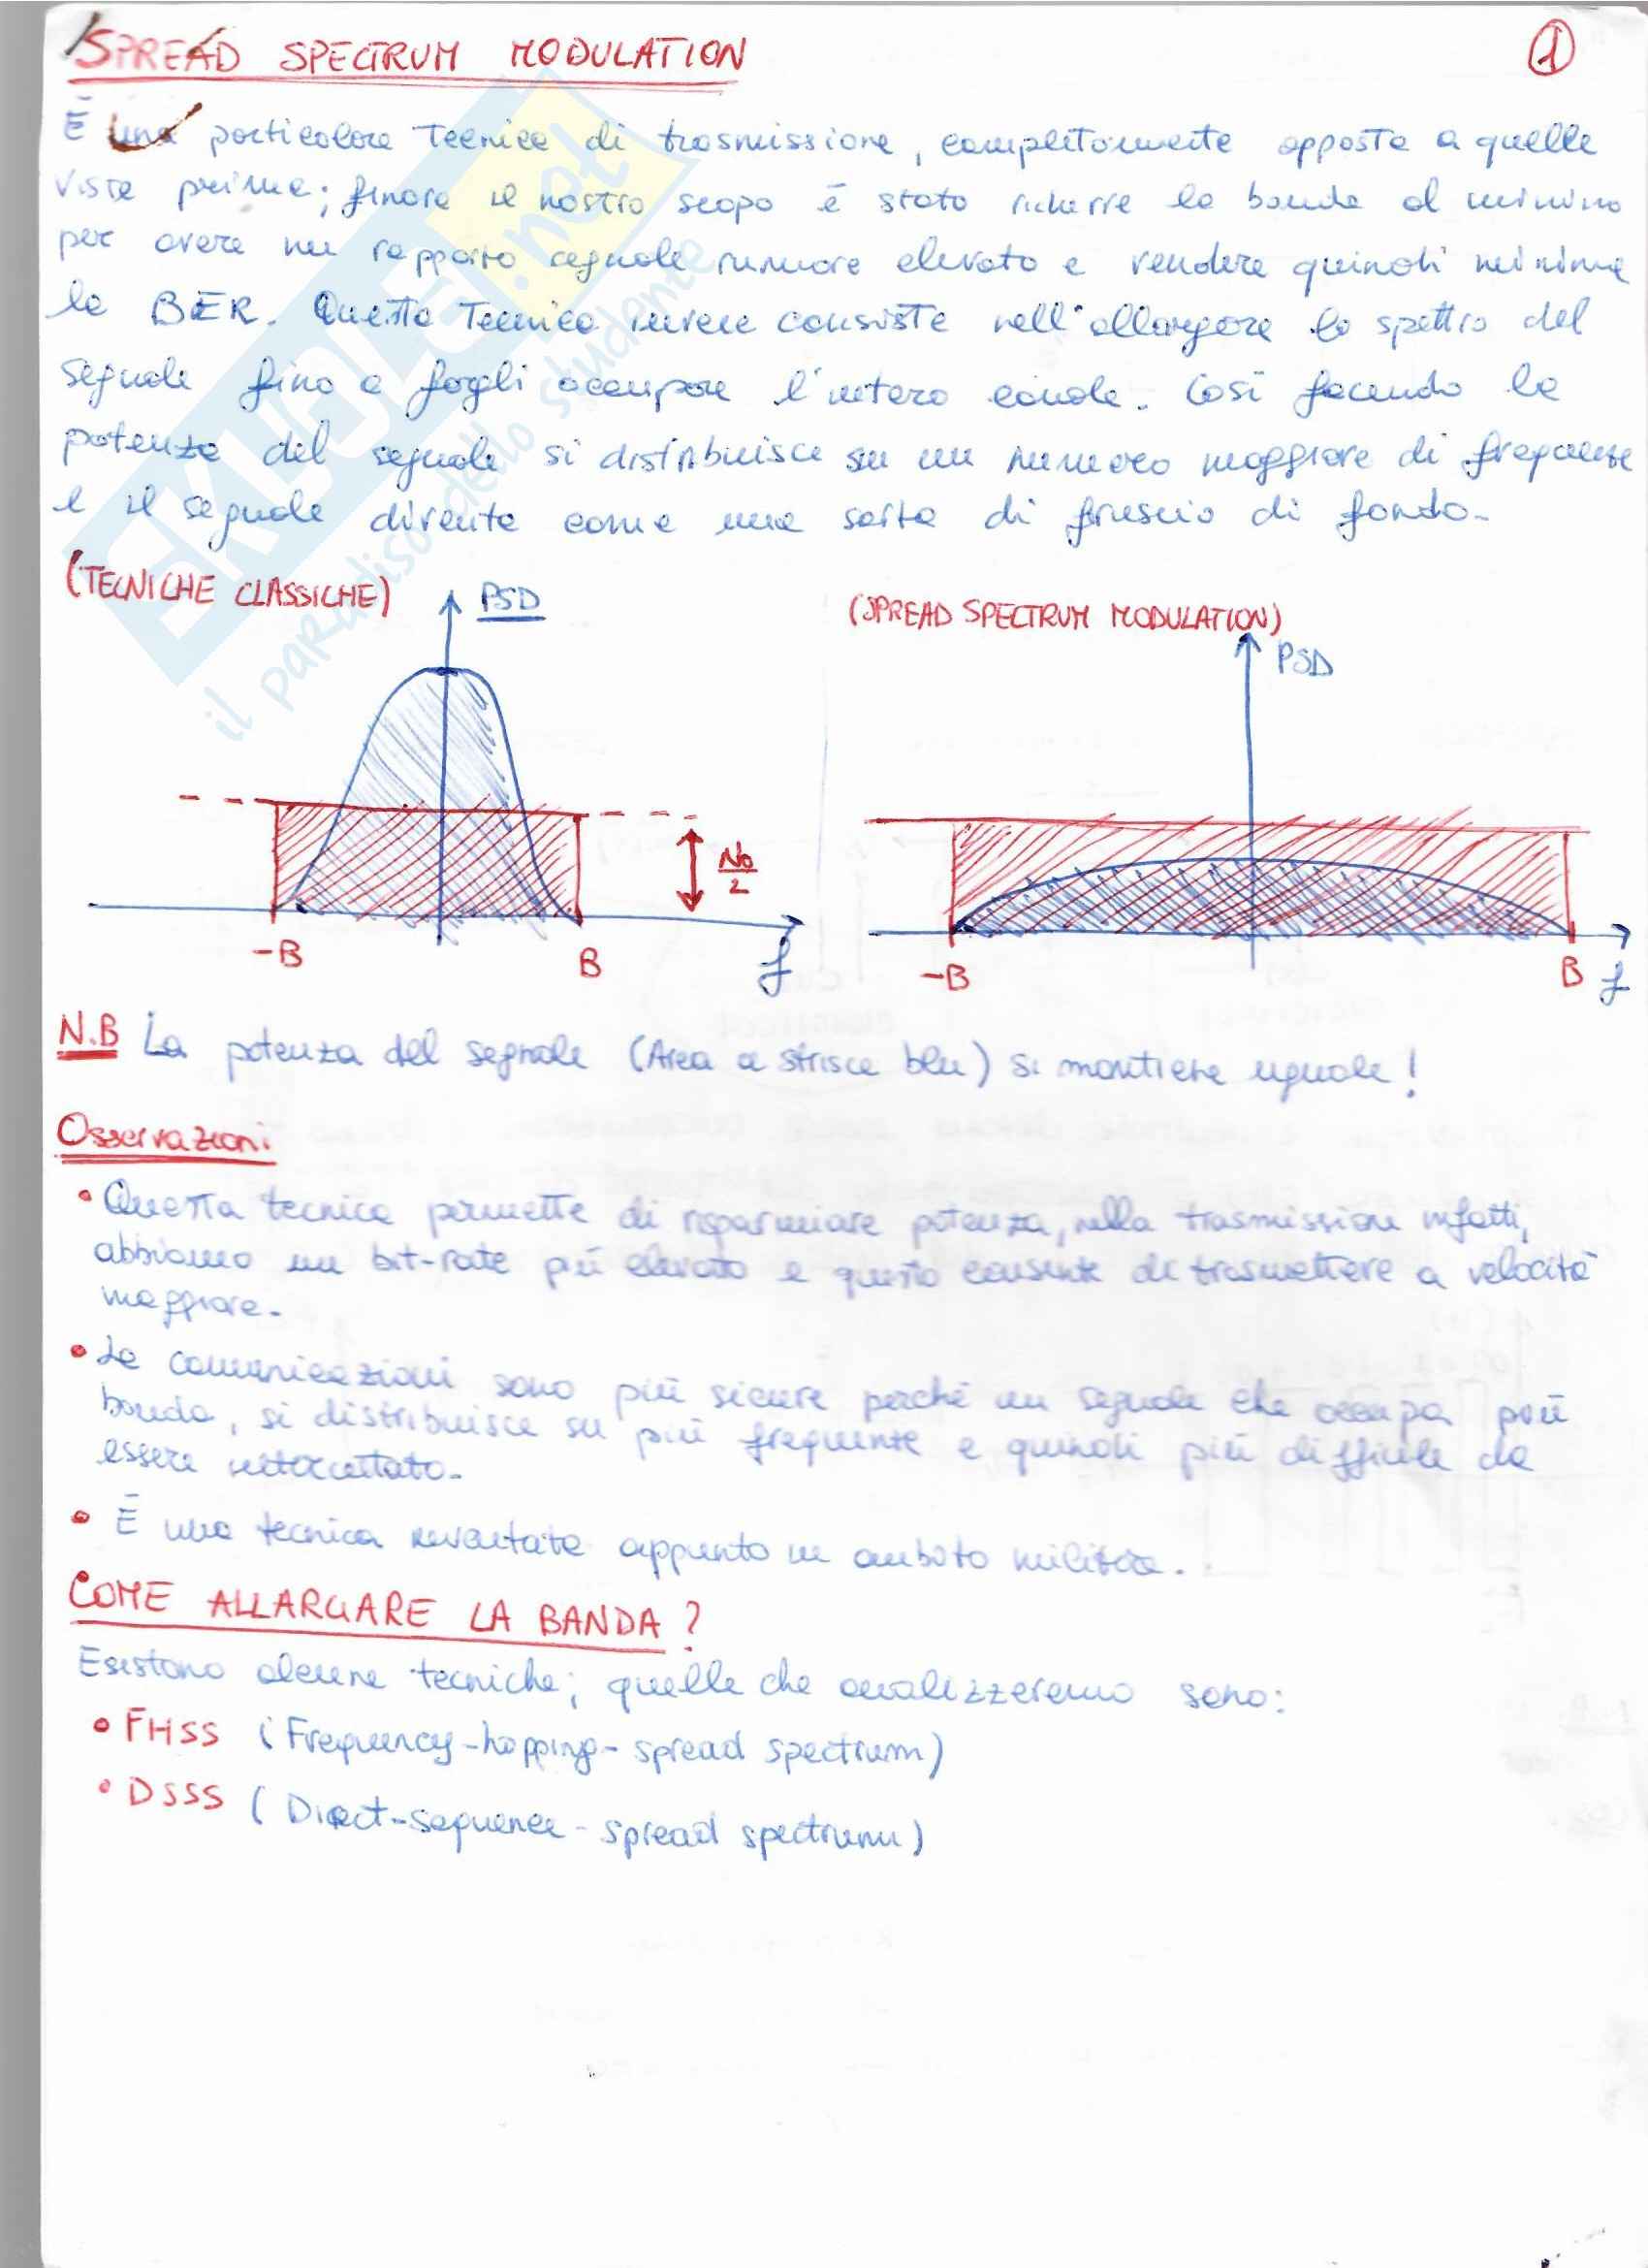 SPREAD SPECTRUM MODULATION
1
È una particolare tecnica di trasmissione, completamente opposta a quelle
viste prima; finora il nostro scopo è stato ridurre la banda al minimo
per avere un rapporto segnale rumore elevato e rendere quindi minima
la BER. Questa tecnica invece consiste nell'allargare lo spettro del
segnale fino a fargli occupare l'intero canale. Così facendo la
potenza del segnale si distribuisce su un numero maggiore di frequenze
e il segnale diventa come una sorta di fruscio di fondo.
(TECNICHE CLASSICHE)
PSD
(SPREAD SPECTRUM MODULATION)
PSD
No/2
-B
B
f
-B
B
f
N.B La potenza del segnale (Area a strisce blu) si mantiene uguale!
Osservazioni
• Questa tecnica permette di risparmiare potenza, nella trasmissione infatti,
abbiamo un bit-rate più elevato e questo consente di trasmettere a velocità
maggiore.
• Le comunicazioni sono più sicure perché un segnale che occupa più
banda, si distribuisce su più frequenze e quindi più difficile da
essere intercettato.
• È una tecnica inventata appunto in ambito militare.
COME ALLARGARE LA BANDA?
Esistono alcune tecniche; quelle che analizzeremo sono:
• FHSS (Frequency-hopping-spread spectrum)
• DSSS (Direct-sequence-spread spectrum)
SKUOLA.net
il paradiso dello studente